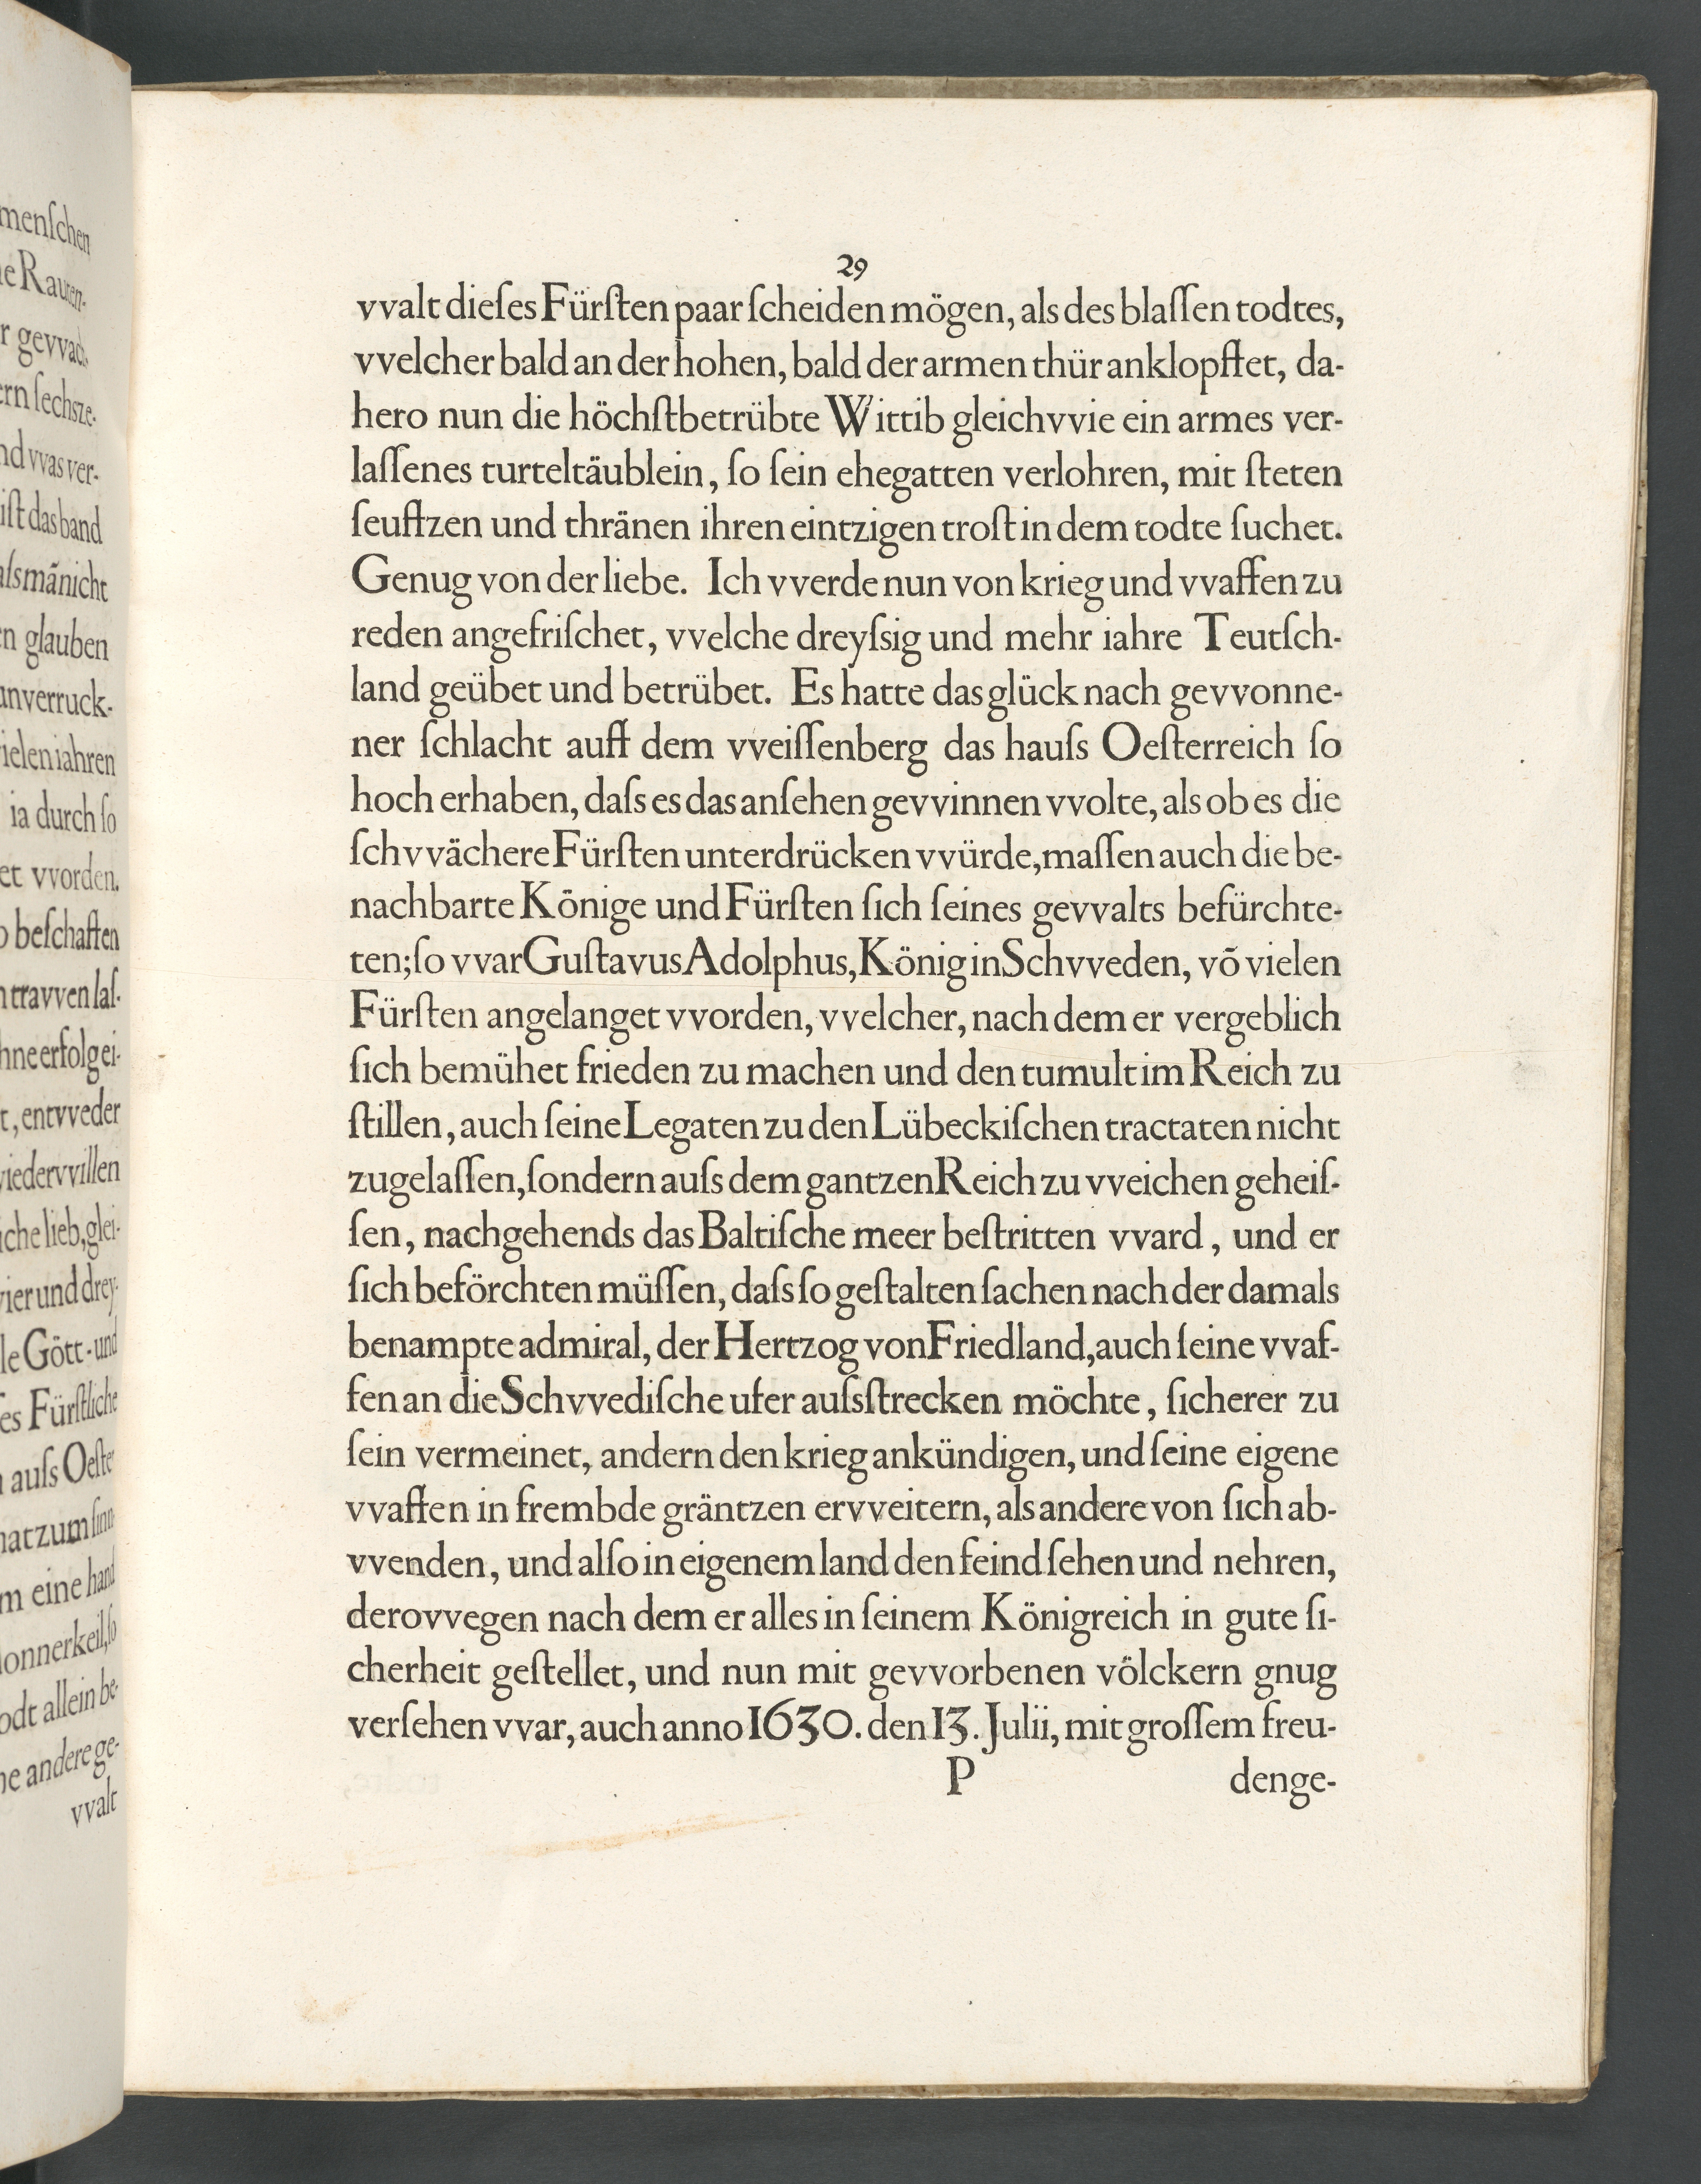 29
vvalt dieſes Fürſten paar ſcheiden mögen, als des blaſſen todtes,
vvelcher bald an der hohen, bald der armen thür anklopffet, da-
hero nun die höchſtbetrübte Wittib gleichvvie ein armes ver-
laſſenes turteltäublein, ſo ſein ehegatten verlohren, mit ſteten
ſeufftzen und thränen ihren eintzigen troſt in dem todte ſuchet.
Genug von der liebe. Ich vverde nun von krieg und vvaffen zu
reden angefriſchet, vvelche dreyſsig und mehr iahre Teutſch-
land geübet und betrübet. Es hatte das glück nach gevvonne-
ner ſchlacht auff dem vveiſſenberg das hauſs Oeſterreich ſo
hoch erhaben, daſs es das anſehen gevvinnen vvolte, als ob es die
ſchvvächere Fürſten unterdrücken vvürde, maſſen auch die be-
nachbarte Könige und Fürſten ſich ſeines gevvalts befürchte-
ten; ſo vvar Guſtavus Adolphus, König in Schvveden, võ vielen
Fürſten angelanget vvorden, vvelcher, nach dem er vergeblich
ſich bemühet frieden zu machen und den tumult im Reich zu
ſtillen, auch ſeine Legaten zu den Lübeckiſchen tractaten nicht
zugelaſſen, ſondern auſs dem gantzen Reich zu vveichen geheiſ-
ſen, nachgehends das Baltiſche meer beſtritten vvard, und er
ſich beförchten müſſen, daſs ſo geſtalten ſachen nach der damals
benampte admiral, der Hertzog von Friedland, auch ſeine vvaf-
fen an die Schvvediſche ufer auſsſtrecken möchte, ſicherer zu
ſein vermeinet, andern den krieg ankündigen, und ſeine eigene
vvaffen in frembde gräntzen ervveitern, als andere von ſich ab-
vvenden, und alſo in eigenem land den feind ſehen und nehren,
derovvegen nach dem er alles in ſeinem Königreich in gute ſi-
cherheit geſtellet, und nun mit gevvorbenen völckern gnug
verſehen vvar, auch anno 1630. den 13. Julii, mit groſſem freu-
P denge-